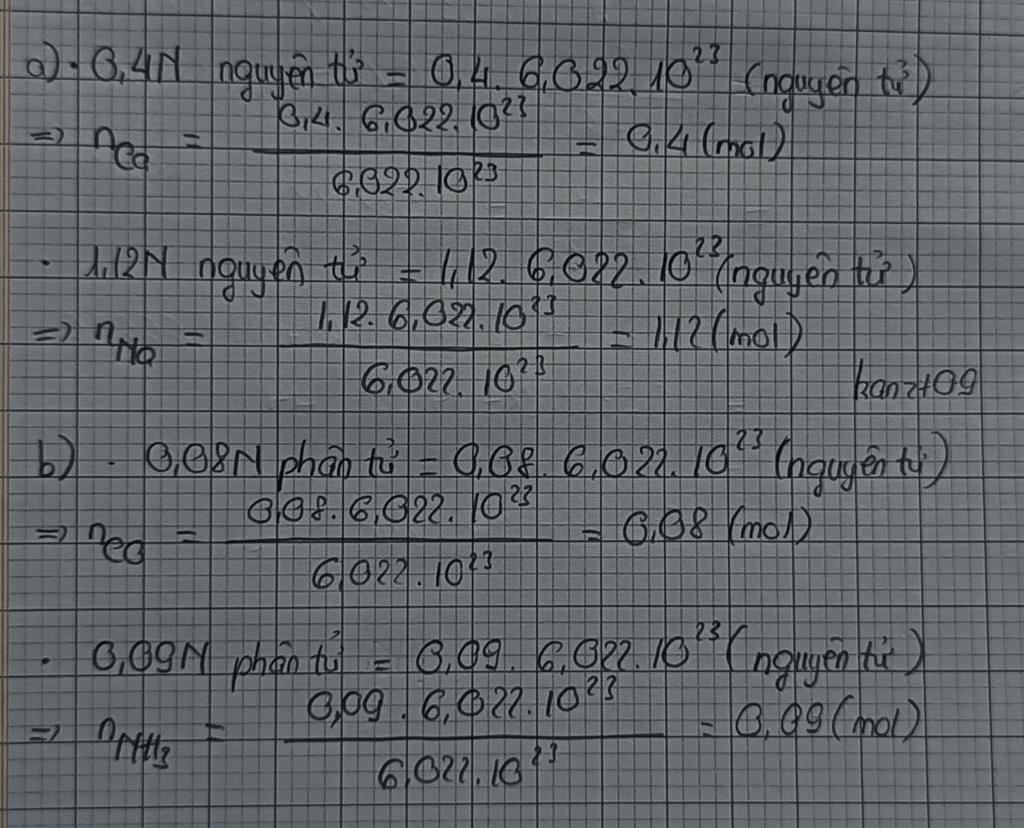 a) · 0,4N nguyên tử = 0,4. 6,022.10²³ (nguyên tử)
=> nCa = 0,4. 6,022.10²³ / 6,022.10²³ = 0,4 (mol)
· 1,12N nguyên tử = 1,12. 6,022.10²³ (nguyên tử)
=> nNa = 1,12. 6,022.10²³ / 6,022.10²³ = 1,12 (mol)
kanzt09
b) · 0,08N phân tử = 0,08. 6,022.10²³ (nguyên tử)
=> nCO = 0,08. 6,022.10²³ / 6,022.10²³ = 0,08 (mol)
· 0,09N phân tử = 0,09. 6,022.10²³ (nguyên tử)
=> nNH₃ = 0,09. 6,022.10²³ / 6,022.10²³ = 0,09 (mol)